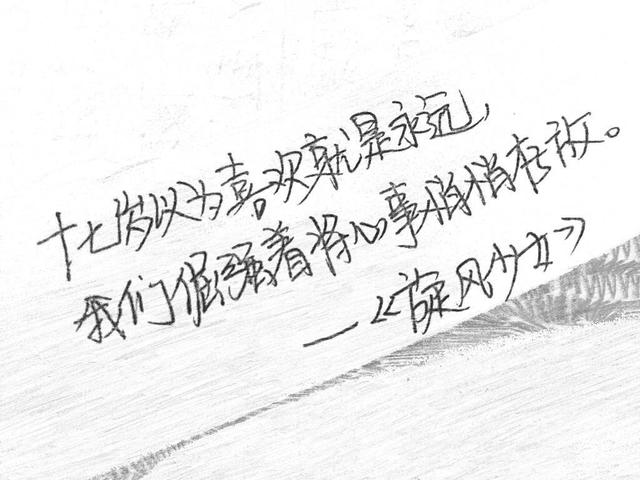 十七岁以为喜欢就是永远,
我们倔强着将心事悄悄存放。
—《旋风少女》